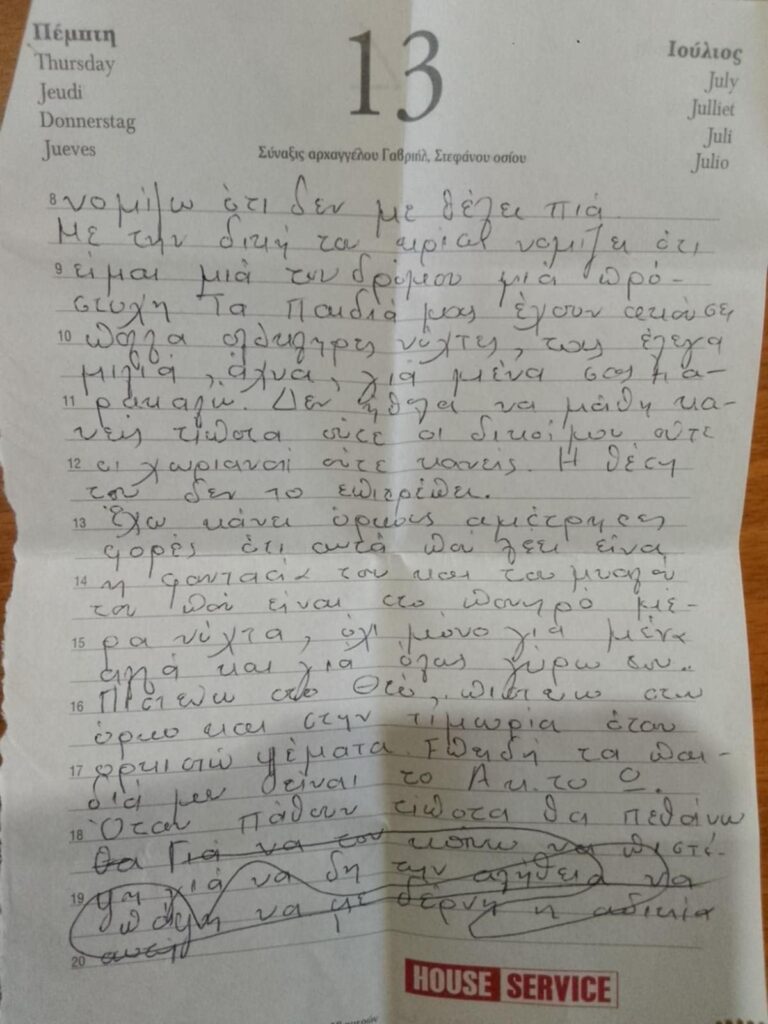 Πέμπτη
Thursday
Jeudi
Donnerstag
Jueves
13
Ιούλιος
July
Julliet
Juli
Julio
Σύναξις αρχαγγέλου Γαβριήλ, Στεφάνου οσίου
8 νομίζω ότι δεν με θέλει πιά
Με την δική του νομίζει ότι
9 είμαι μιά του δρόμου μιά πρό-
στυχη Τα παιδιά μας έχουν ακούσει
10 πολλά ολόκληρες νύχτες, τους έλεγα
μιλιά, άχνα, γιά μένα σας πα-
11 ρακαλώ. Δεν ήθελα να μάθη κα-
νείς τίποτα ούτε οι δικοί μου ούτε
12 οι χωριανοί ούτε κανείς. Η θέση
του δεν το επιτρέπει.
13 Έχω κάνει όρκους αμέτρητες
φορές ότι αυτά που λέει είναι
14 η φαντασία του και το μυαλό
του που είναι στο πονηρό μέ-
15 ρα νύχτα, όχι μόνο γιά μένα
αλλά και γιά όλους γύρω του..
16 Πιστεύω στο Θεό, πιστεύω στον
όρκο και στην τιμωρία όταν
17 ορκιστώ ψέματα. Επειδή τα παι-
διά μου είναι το Α κ. το Ω.
18 Όταν πάθουν τίποτα θα πεθάνω
θα Γιά να τον κάνω να πιστέ-
19 ψη γιά να δη την αλήθεια να
πάψη να με δέρνη η αδικία
20 αυτή
HOUSE SERVICE